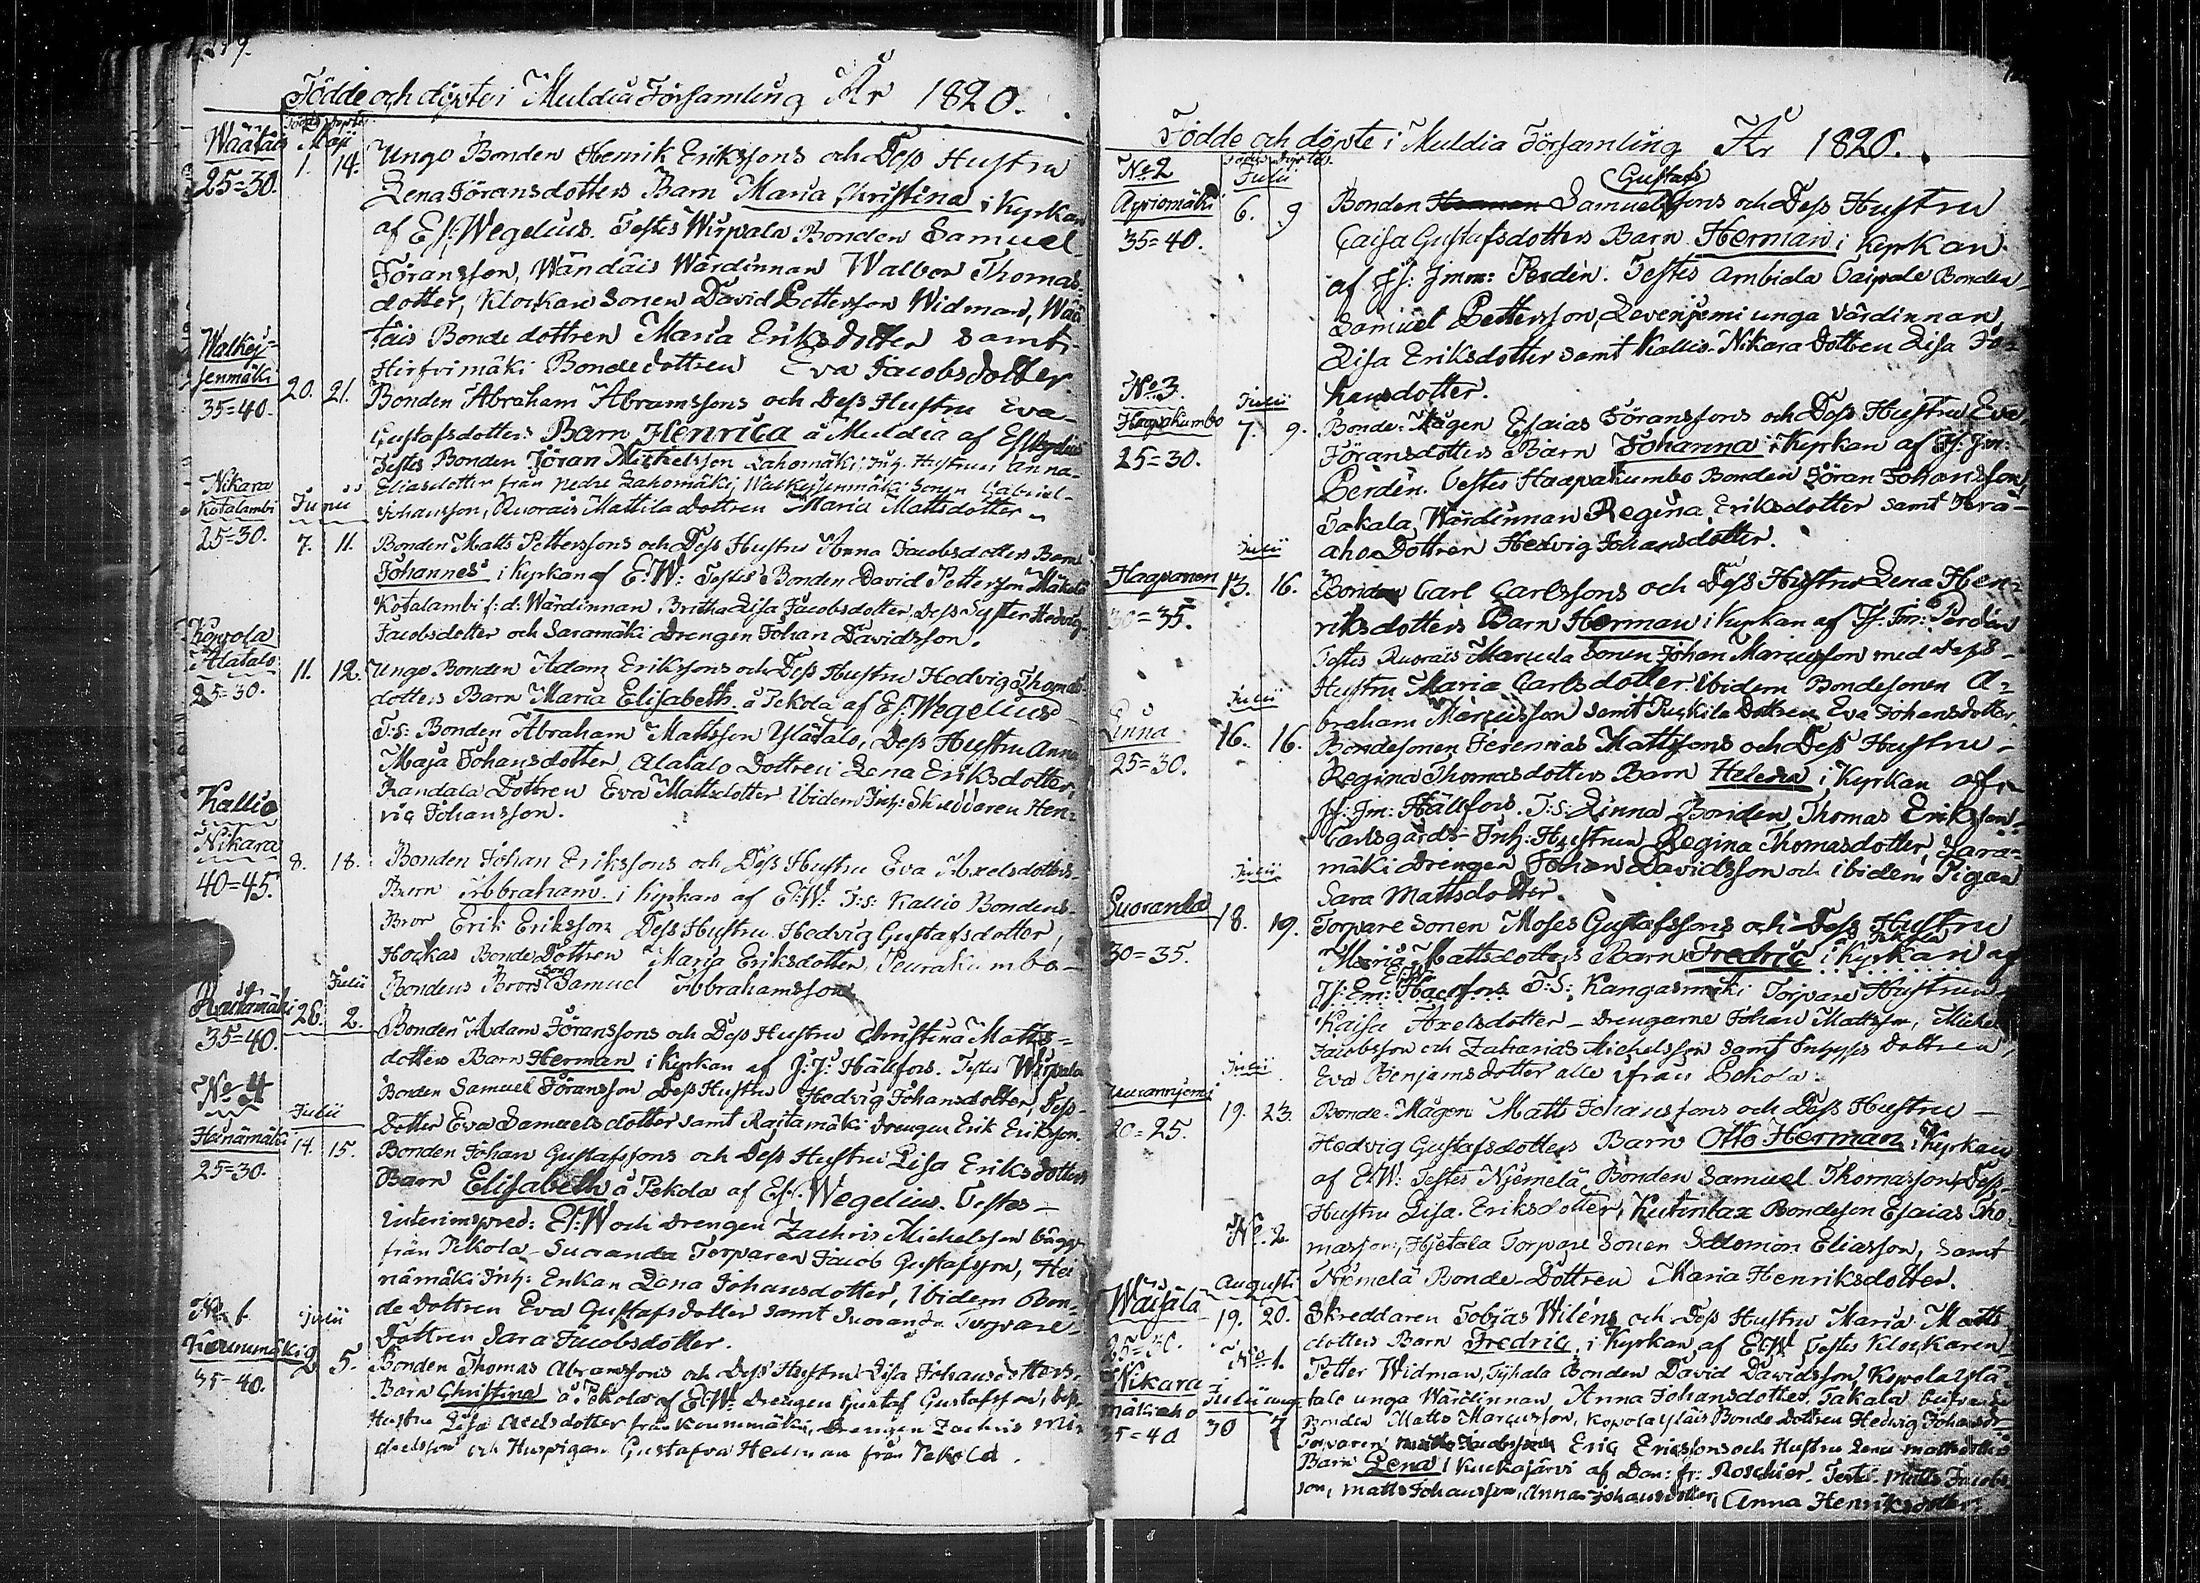 Födde och döpte i Muldia Församling År 1820.
Födde Döpte
Wäätäis Maji
25=30. 1. 14. Unge Bonden Henrik Erikssons och Dess Hustru
Lena Föransdotters Barn Maria Christina i Kyrkan
af Ef: Wegelius. Testes Wirpala Bonden Samuel
Föransson, Wändäis Wärdinnan Walbor Thomas-
dotter, Klockare Sonen David Pettersson Widman, Wää
täis Bonde dottren Maria Eriksdotter samt
Hirfvimäki Bondedottren Eva Jacobsdotter.
Walkej-
jenmäki
35=40. 20. 21. Bonden Abraham Abramssons och Dess Hustru Eva
Gustafsdotters Barn Henrica å Muldia af
Testes Bonden Jöran Michelsson Lahomäki, Inh: Hustrun Anna
Eliasdotter från Nedre Lahomäki, Walkejjenmäki Sonen Gabriel
Johansson, Ruorais Mattila dottren Maria Mattsdotter
Nikara
Kotalambi Junii
25=30. 7. 11. Bonden Matts Pettersons och Dess Hustru Anna Jacobsdotters Barn
Johannes i Kyrkan af E:W: Testes Bonden David Pettersson Mäkelä
Kotalambi f:d: Wärdinnan Britha Lisa Jacobsdotter, Dess Syster Hedvig
Jacobsdotter och Saramäki Drengen Johan Davidsson.
Kopola
Alatalo
25=30. 11. 12. Unge Bonden Adam Erikssons och Dess Hustru Hedvig Thomas-
dotters Barn Maria Elisabeth å Pekola af Ef: Wegelius
T:s: Bonden Abraham Mattsson Ylätalo, Dess Hustru Anna
Maja Johansdotter Alatalo Dottren Lena Eriksdotter,
Randala Dottren Eva Mattsdotter Ibidem Inh: Skräddaren Hen-
ric Johansson.
Kallio
Nikara
40=45. 8. 18. Bonden Johan Erikssons och Dess Hustru Eva Axelsdotters
Barn Abraham i Kyrkan af E:W: T:s: Kallio Bondens
Bror Erik Eriksson Dess Hustru Hedvig Gustafsdotter,
Hockas BondeDottren Maria Eriksdotter, Peurakumbo
Bondens Brors Son Samuel Abrahamsson
Julii
Raitamäki
35=40. 26. 2. Bonden Adam Föranssons och Dess Hustru Christina Matts-
dotters Barn Herman i Kyrkan af J:J: Hällfors. Testes Wirpala
Bonden Samuel Föransson Dess Hustru Hedvig Johansdotter, Dess
Dotter Eva Samuelsdotter samt Raitamäki drengen Erik Eriksson.
No 4
Julii
Heinämäki
25=30. 14. 15. Bonden Johan Gustafssons och Dess Hustru Lisa Eriksdotters
Barn Elisabeth å Pekola af Ef: Wegelius. Testes
interimspred: E:W och Drengen Zachris Michelsson bägge
från Pekola, Suoranda Torparen Jacob Gustafsson, Hei
nämäki Inh: Enkan Lena Johansdotter, Ibidem Bon-
de dottren Eva Gustafsdotter samt Suoranda Torpare
Dottren Sara Jacobsdotter.
No 1. Julii
35=40. 2 5. Bonden Thomas Abramssons och Dess Hustru Lisa Johansdotters
Barn Christina å Pekola af E:W: Drengen Gustaf Gustafsson, dess
Hustru Lisa Axelsdotter från Keurumäki, Drengen Zachris Mi-
chelsson och Huspigan Gustafva Hedman från Pekola.
Födde och döpte i Muldia Församling År 1820.
Födde Döpte.
No 2 Julii
Gustafs
35=40. 6. 9 Bonden Samuel sons och Dess Hustru
Caisa Gustafsdotters Barn Herman i Kyrkan
af Perdén. Testes Ambiala Caipale Bonden
Samuel Pettersson, Levenjemi unga värdinnan
Lisa Eriksdotter samt Kallio-Nikara Dottren Lisa Jo-
hansdotter.
No 3.
Haapakumbo Julii
25=30. 7. 9. Bonde-Mågen Esaias Föranssons och Dess Hustru Eva
Föransdotters Barn Johanna i Kyrkan af
Perdén. Testes Haapakumbo Bonden Jöran Johansson,
Takala Wärdinnan Regina Eriksdotter samt
aho Dottren Hedvig Johansdotter.
Julii
Haapanen
30=35. 13. 16. Bonden Carl Carlssons och Dess Hustru Lena Hen-
riksdotters Barn Herman i Kyrkan af Perdén
Testes Ruorais Marcula Sonen Johan Marcusson med Dess
Hustru Maria Carlsdotter. Ibidem Bondesonen A-
braham Marcusson samt Puskila Dottren Eva Johansdotter.
Julii
Linna
25=30. 16. 16. Bondesonen Jeremias Mattssons och Dess Hustru
Regina Thomasdotters Barn Helena i Kyrkan af
Hällfors. T:s: Linna Bonden Thomas Eriksson
Carlsgårds Inh: Hustrun Regina Thomasdotter, Sara-
mäki drengen Johan Davidsson och ibidem Pigan
Sara Mattsdotter.
Julii
Suoranda
30=35. 18. 19. Torpare Sonen Moses Gustafssons och Dess Hustru
Maria Mattsdotters Barn Fredric i Kyrkan af
T:S: Kangasmäki Torpare Hustrun
Kaisa Axelsdotter – Drengarne Johan Mattsson, Michel
Jacobsson och Zakarias Michelsson samt Inhyses dottren
Eva Benjamsdotter alle ifrån Pekola.
Julii
20=25. 19. 23. Bonde-Mågen Matts Johanssons och Dess Hustru
Hedvig Gustafsdotters Barn Otto Herman i Kyrkan
af E:W: Testes Njemelä Bonden Samuel Thomasson, Dess
Hustru Lisa Eriksdotter, Kutinlax Bondeson Esaias Tho-
masson, Hjetala Torpare Sonen Salomon Eliasson, samt
Njemelä Bonde-Dottren Maria Henriksdotter.
No. 2.
Augusti
Waisala
25=30. 19. 20. Skreddaren Tobias Wiléns och Dess Hustru Maria Matts
dotters Barn Fredric i Kyrkan af E:W Testes Klockaren
Petter Widman, Tyhala Bonden David Davidsson, Kopola Ylä-
talo unga Wärdinnan Anna Johansdotter, Takala
Bonden Matts Marcusson, Kopola Yläis Bonde dottren Hedvig Johansdr
No 1.
Nikara
mäkiaho Julii aug
35=40 30 7 Torparen Eric Ericssons och Hustru Lena Mattsdotters
Barn Lena i Kuckajärvi af Roschier. Test: Matts Jacobs
son, Matts Johansson, Anna Johansdotter, Anna Henriksdotter.